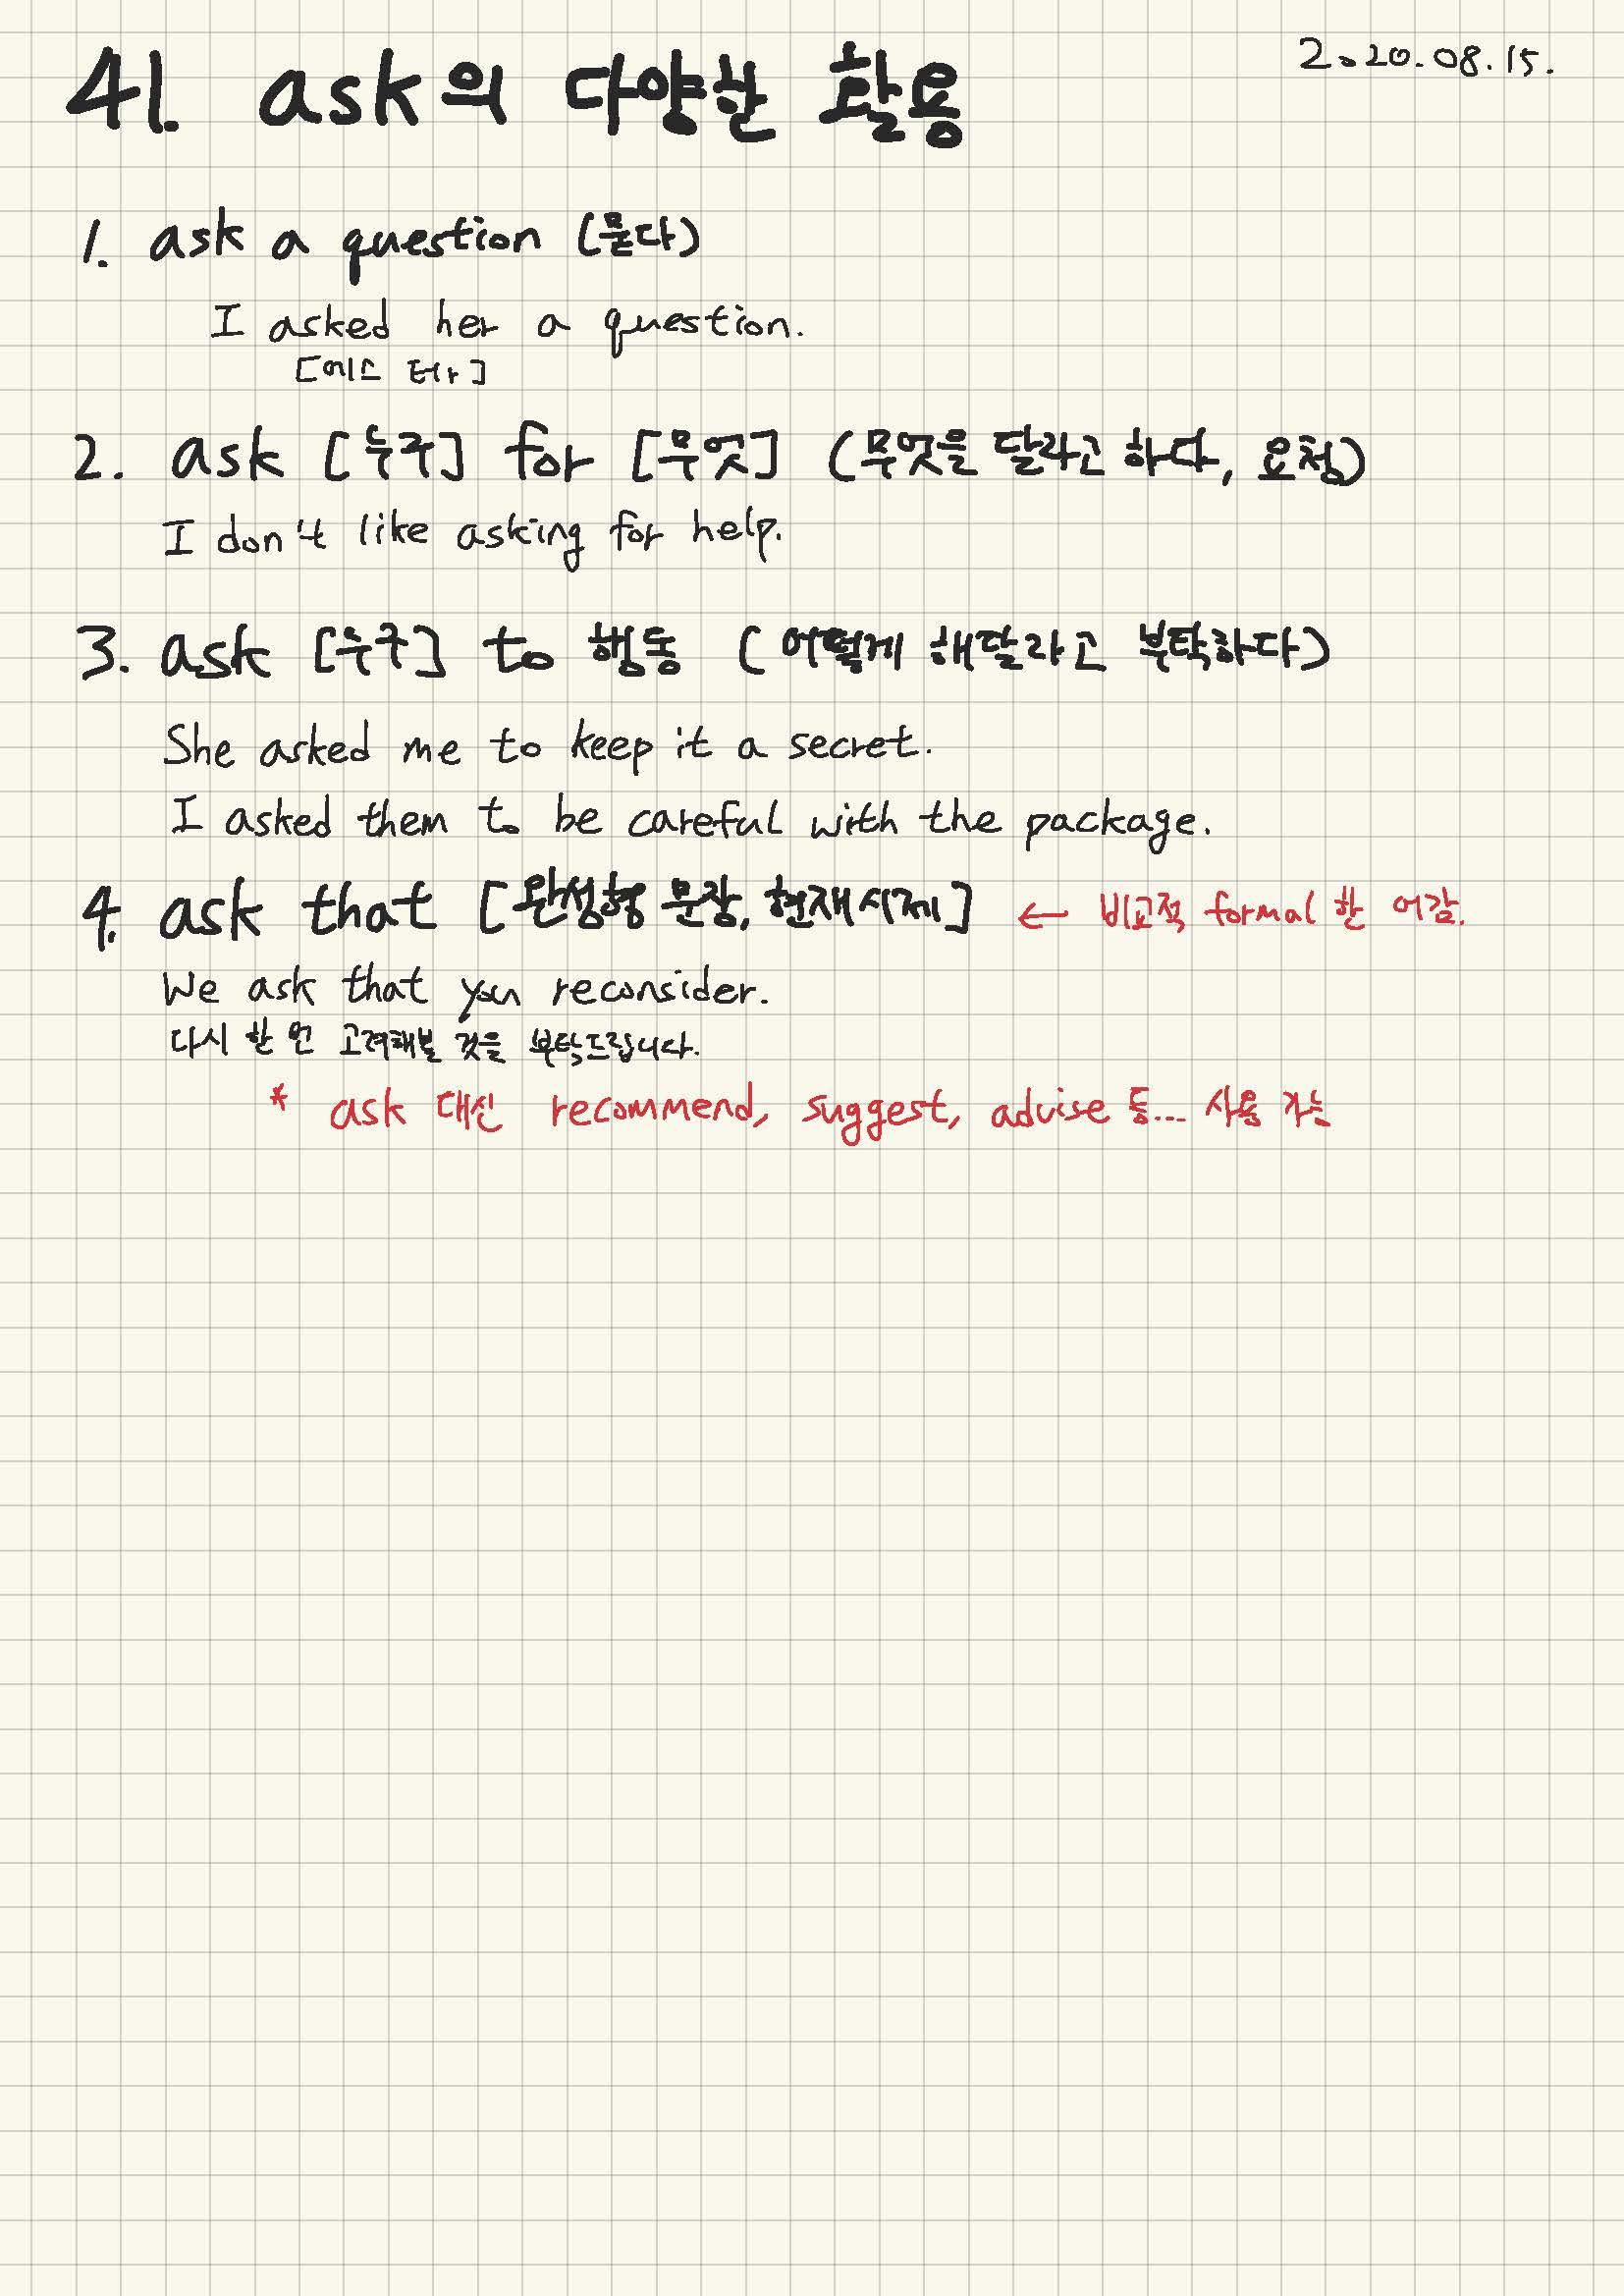 2020.08.15.
41. ask의 다양한 활용
1. ask a question (묻다)
I asked her a question.
[애스 터ㅏ]
2. ask [누구] for [무엇] (무엇을 달라고 하다, 요청)
I don't like asking for help.
3. ask [누구] to 행동 (어떻게 해달라고 부탁하다)
She asked me to keep it a secret.
I asked them to be careful with the package.
4. ask that [완성형 문장, 현재시제] ← 비교적 formal 한 어감.
We ask that you reconsider.
다시 한 번 고려해볼 것을 부탁드립니다.
* ask 대신 recommend, suggest, advise 등... 사용 가능